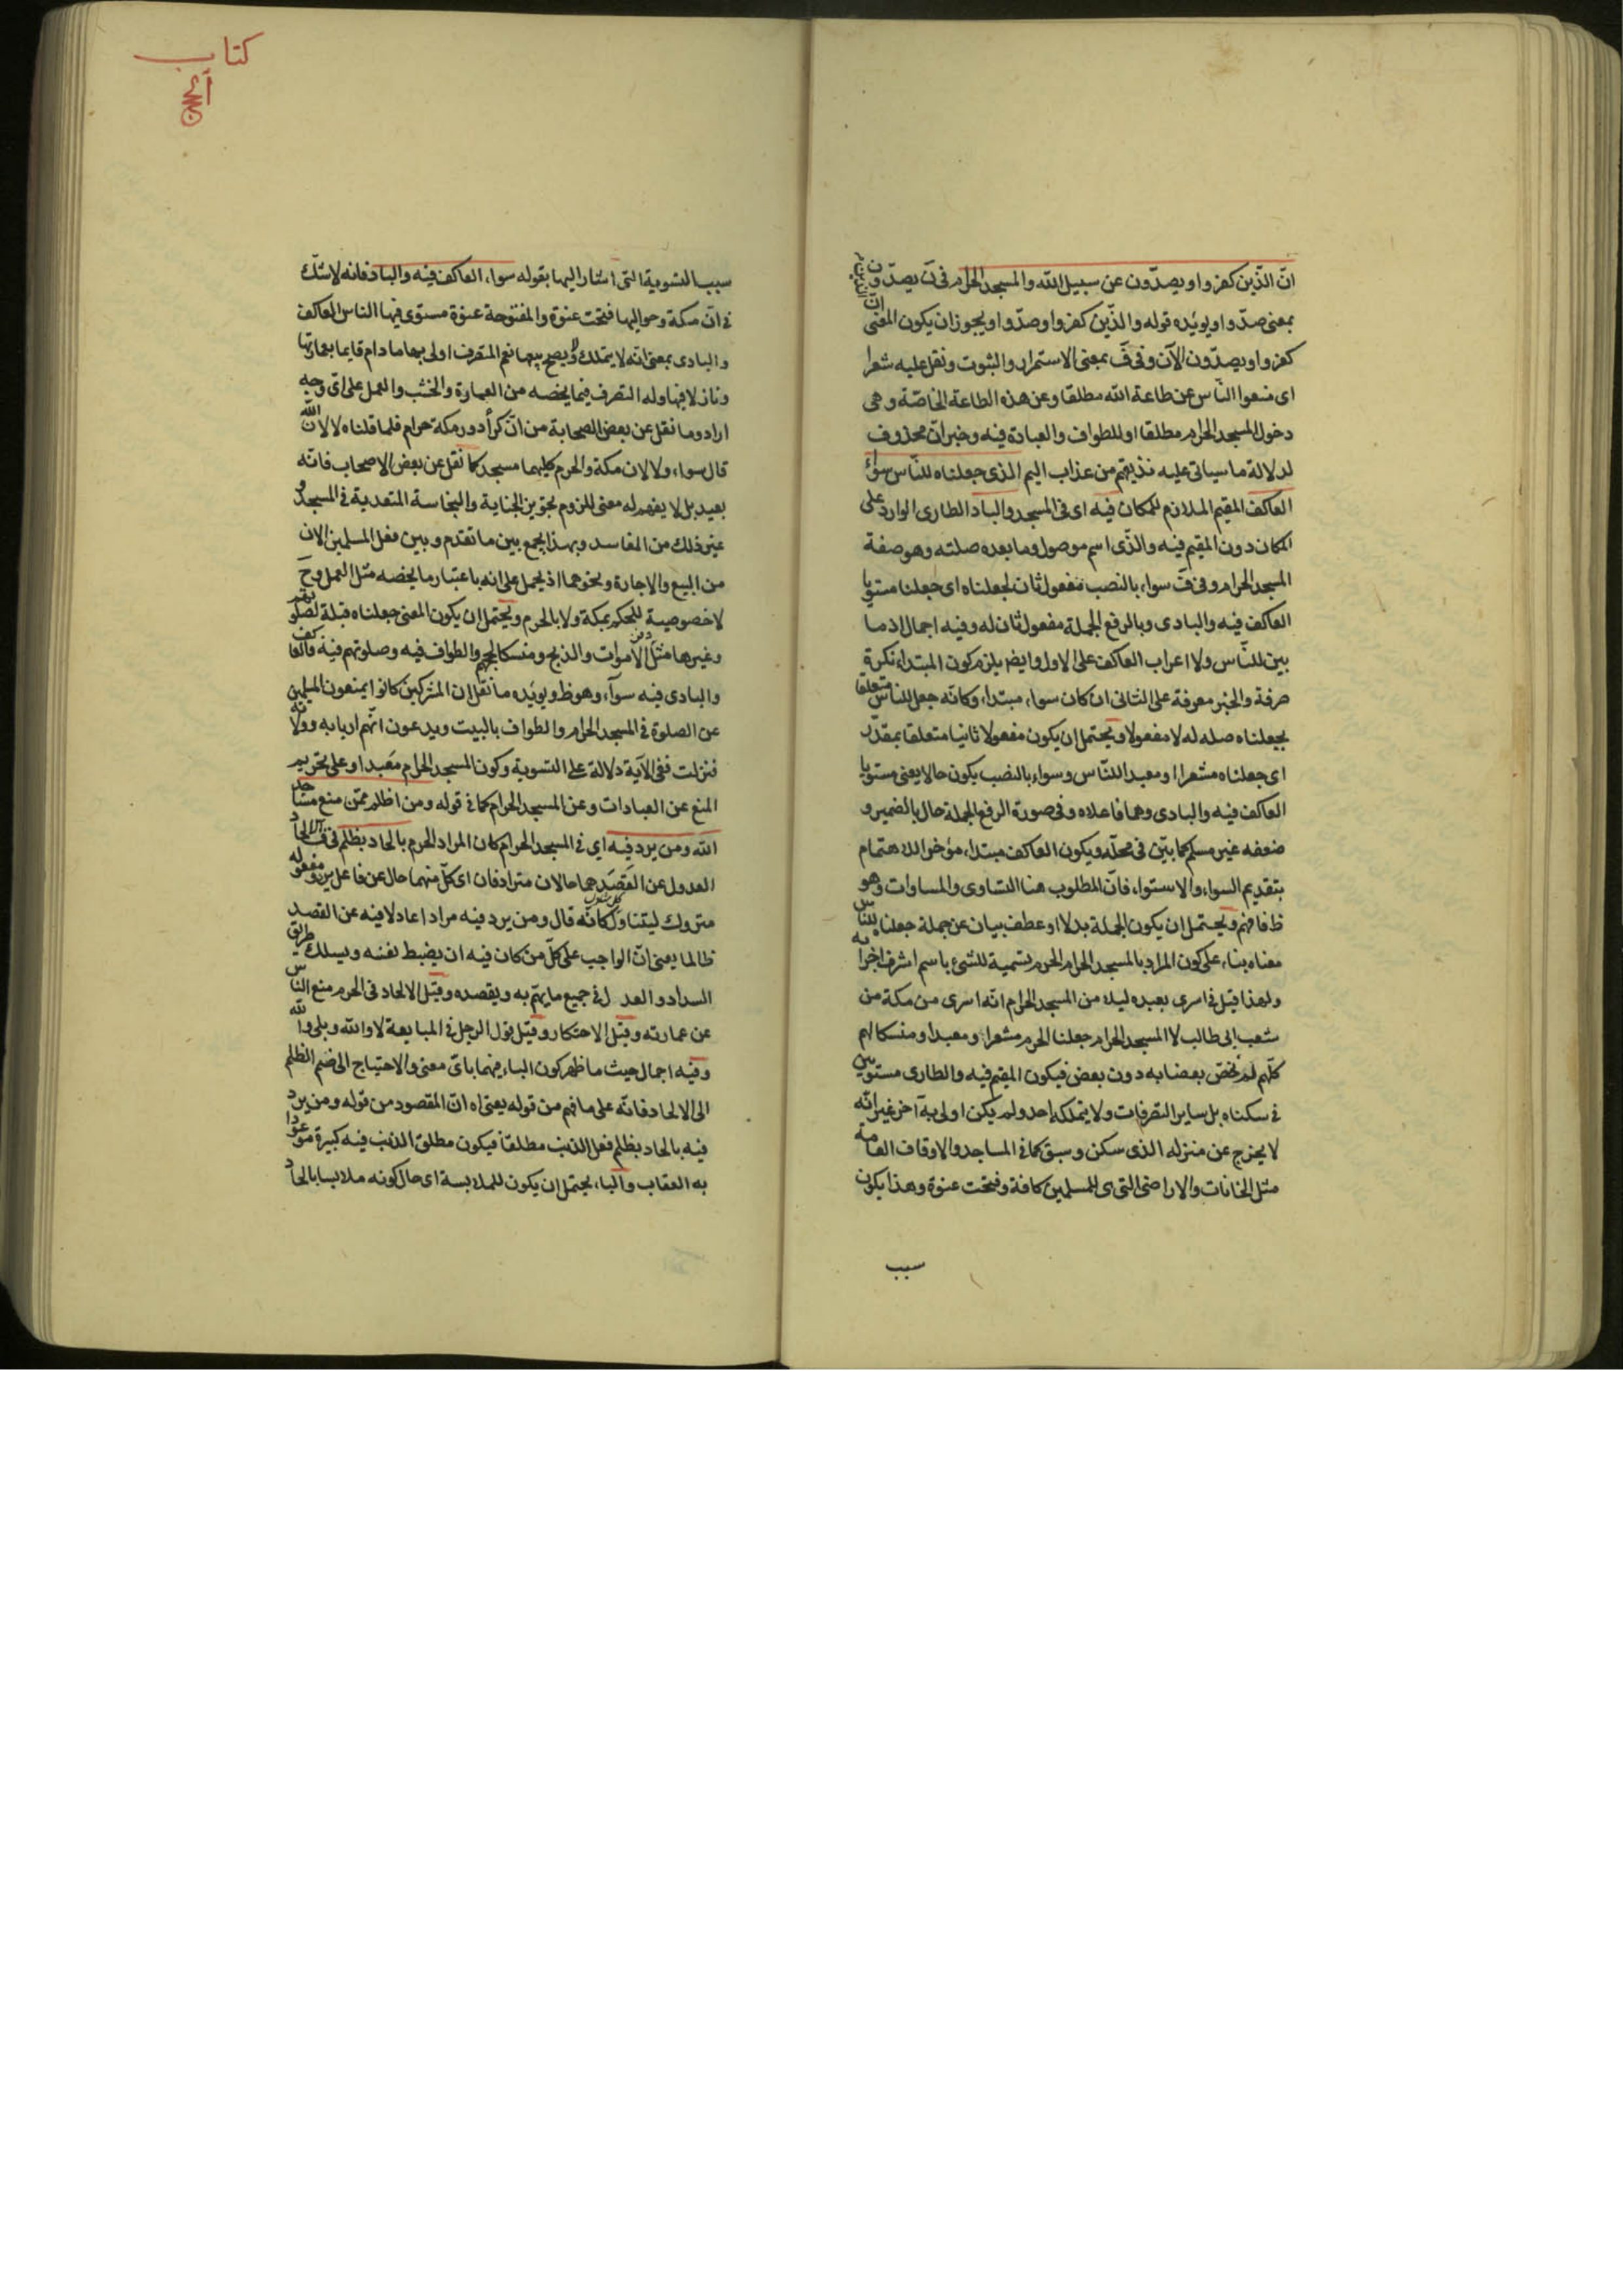 انّ الذّين كفروا ويصدّون عن سبيل الله والمسجد الحرام فى نّ يصدّون
بمعنى صدّوا ويويّده قوله والذّين كفروا وصدّوا ويجوز ان يكون المعنى انّ
كفروا ويصدّون الآن وفى قّ بمعنى الاستمرار والثبوت ونقل عليه شعرا
اى منعوا النّاس عن طاعة الله مطلقا وعن هذه الطاعة الخاصّة وهى
دخول المسجد الحرام مطلقا او للطواف والعبادة فيه وخبر انّ محذوف
لدلالة ما سياتى عليه نذيقهم من عذاب اليم الذى جعلناه للنّاس سواء
العاكف المقيم الملازم للمكان فيه اى فى المسجد والباد الطارى الوارد على
المكان دون المقيم فيه والذّى اسم موصول وما بعده صلته وهو صفة
المسجد الحرام وفى قّ سواء بالنصب مفعول ثان لجعلناه اى جعلنا مستويا
العاكف فيه والبادى وبالرفع الجملة مفعول ثان له وفيه اجمال اذ ما
بين للنّاس ولا اعراب العاكف على الاول وايضا يلزم كون المبتداء نكرة
صرفة والخبر معرفة على الثانى ان كان سواء مبتداء وكانّه جعل للناس متعلقا
بجعلناه صله له لا مفعولا ويحتمل ان يكون مفعولا ثانيا متعلقا بمقدّر
اى جعلناه مشعرا او معبدا للنّاس وسواء بالنصب يكون حالا يعنى مستويا
العاكف فيه والبادى وهما فاعلاه وفى صورة الرفع الجملة حال بالضمير و
ضعفه غير مسلم كما بيّن فى محلّه ويكون العاكف مبتداء مؤخرا للاهتمام
بتقديم السواء والاستواء فانّ المطلوب هنا التساوى والمساوات وهو
ظ فافهم ويحتمل ان يكون الجملة بدلا او عطف بيان عن جملة جعلناه للناس
معناه بناء على كون المراد بالمسجد الحرام الحرم تسمية للشئ باسم اشرف اجزائه
ولهذا قيل فى اسرى بعبده ليلا من المسجد الحرام انّه اسرى من مكة من
شعب ابى طالب لا المسجد الحرام جعلنا الحرم مشعرا ومعبدا ومنسكا لهم
كلّهم لم نخصّ بعضا به دون بعض فيكون المقيم فيه والطارى مستويين
فى سكناه بل ساير التصرفات ولا يتملكه احد ولم يكن اولى به آخر غير انّه
لا يخرج عن منزله الذى سكن وسبق كما فى المساجد والاوقاف العامة
مثل الخانات والاراضى التى هى للمسلمين كافة وفتحت عنوة وهذا يكون
سبب
كتاب
الحج
سبب التسوية التى اشار اليها بقوله سواء العاكف فيه والباد فانه لا شكّ
فى انّ مكة وحواليها فتحت عنوة والمفتوحة عنوة مستوى فيها الناس العاكف
والبادى بمعنى انّه لا يتملك ولا يصح بيعها نعم المتصرف اولى بها ما دام قايما بعمارتها
ونازلا فيها وله التصرف فيما يخصه من العمارة والخشب والعمل على اىّ وجه
اراد وما نقل عن بعض الصحابة من انّ كرأ دور مكة حرام فلما قلناه لا لانّ الله
قال سواء ولا لان مكة والحرم كليهما مسجد كما نقل عن بعض الاصحاب فانّه
بعيد بل لا يفهم له معنى للزوم تجويز الجنابة والنجاسة المتعدية فى المسجد و
غير ذلك من المفاسد وبهذا يجمع بين ما تقدم وبين فعل المسلمين الان
من البيع والاجارة ونحوهما اذ يحمل على انه باعتبار ما يخصه مثل العمل وحّ
لا خصوصية للحكم بمكة ولا بالحرم ويحتمل ان يكون المعنى جعلناه قبلة لصلوتهم
وغيرها مثل الاموات والذبح ومنسكا لحجهم والطواف فيه وصلوتهم فيه فالعاكف
والبادى فيه سوآء وهو ظ ويويّده ما نقل ان المشركين كانوا يمنعون المسلمين
عن الصلوة فى المسجد الحرام والطواف بالبيت ويدعون انّهم اربابه وولاته
فنزلت ففى الآية دلالة على التسوية وكون المسجد الحرام معبدا وعلى تحريم
المنع عن العبادات وعن المسجد الحرام كما فى قوله ومن اظلم ممّن منع مساجد
الله ومن يرد فيه اى فى المسجد الحرام كان المراد الحرم بالحاد بظلم فى قّ الالحاد
العدول عن القصد هما حالان مترادفان اى كلّ منهما حال عن فاعل يرد ومفعوله
متروك ليتناول كانّه قال ومن يرد فيه مرادا عادلا فيه عن القصد
ظالما يعنى انّ الواجب على كلّ من كان فيه ان يضبط نفسه ويسلك طريق
السداد والعدل فى جميع ما يهتم به ويقصده وقيل الالحاد فى الحرم منع الناس
عن عمارته وقيل الاحتكار وقيل قول الرجل فى المبايعة لا والله وبلى والله
وفيه اجمال حيث ما ظهر كون الباء فيهما باىّ معنى والاحتياج الى ضم الظلم
الى الالحاد فانّه على ما فهم من قوله يعنى اه انّ المقصود من قوله ومن يرد
فيه بالحاد بظلم فعل الذنب مطلقا فيكون مطلق الذنب فيه كبيرة موعودا
به العقاب والباء يحتمل ان يكون للملابسة اى حال كونه ملابسا بالحاد